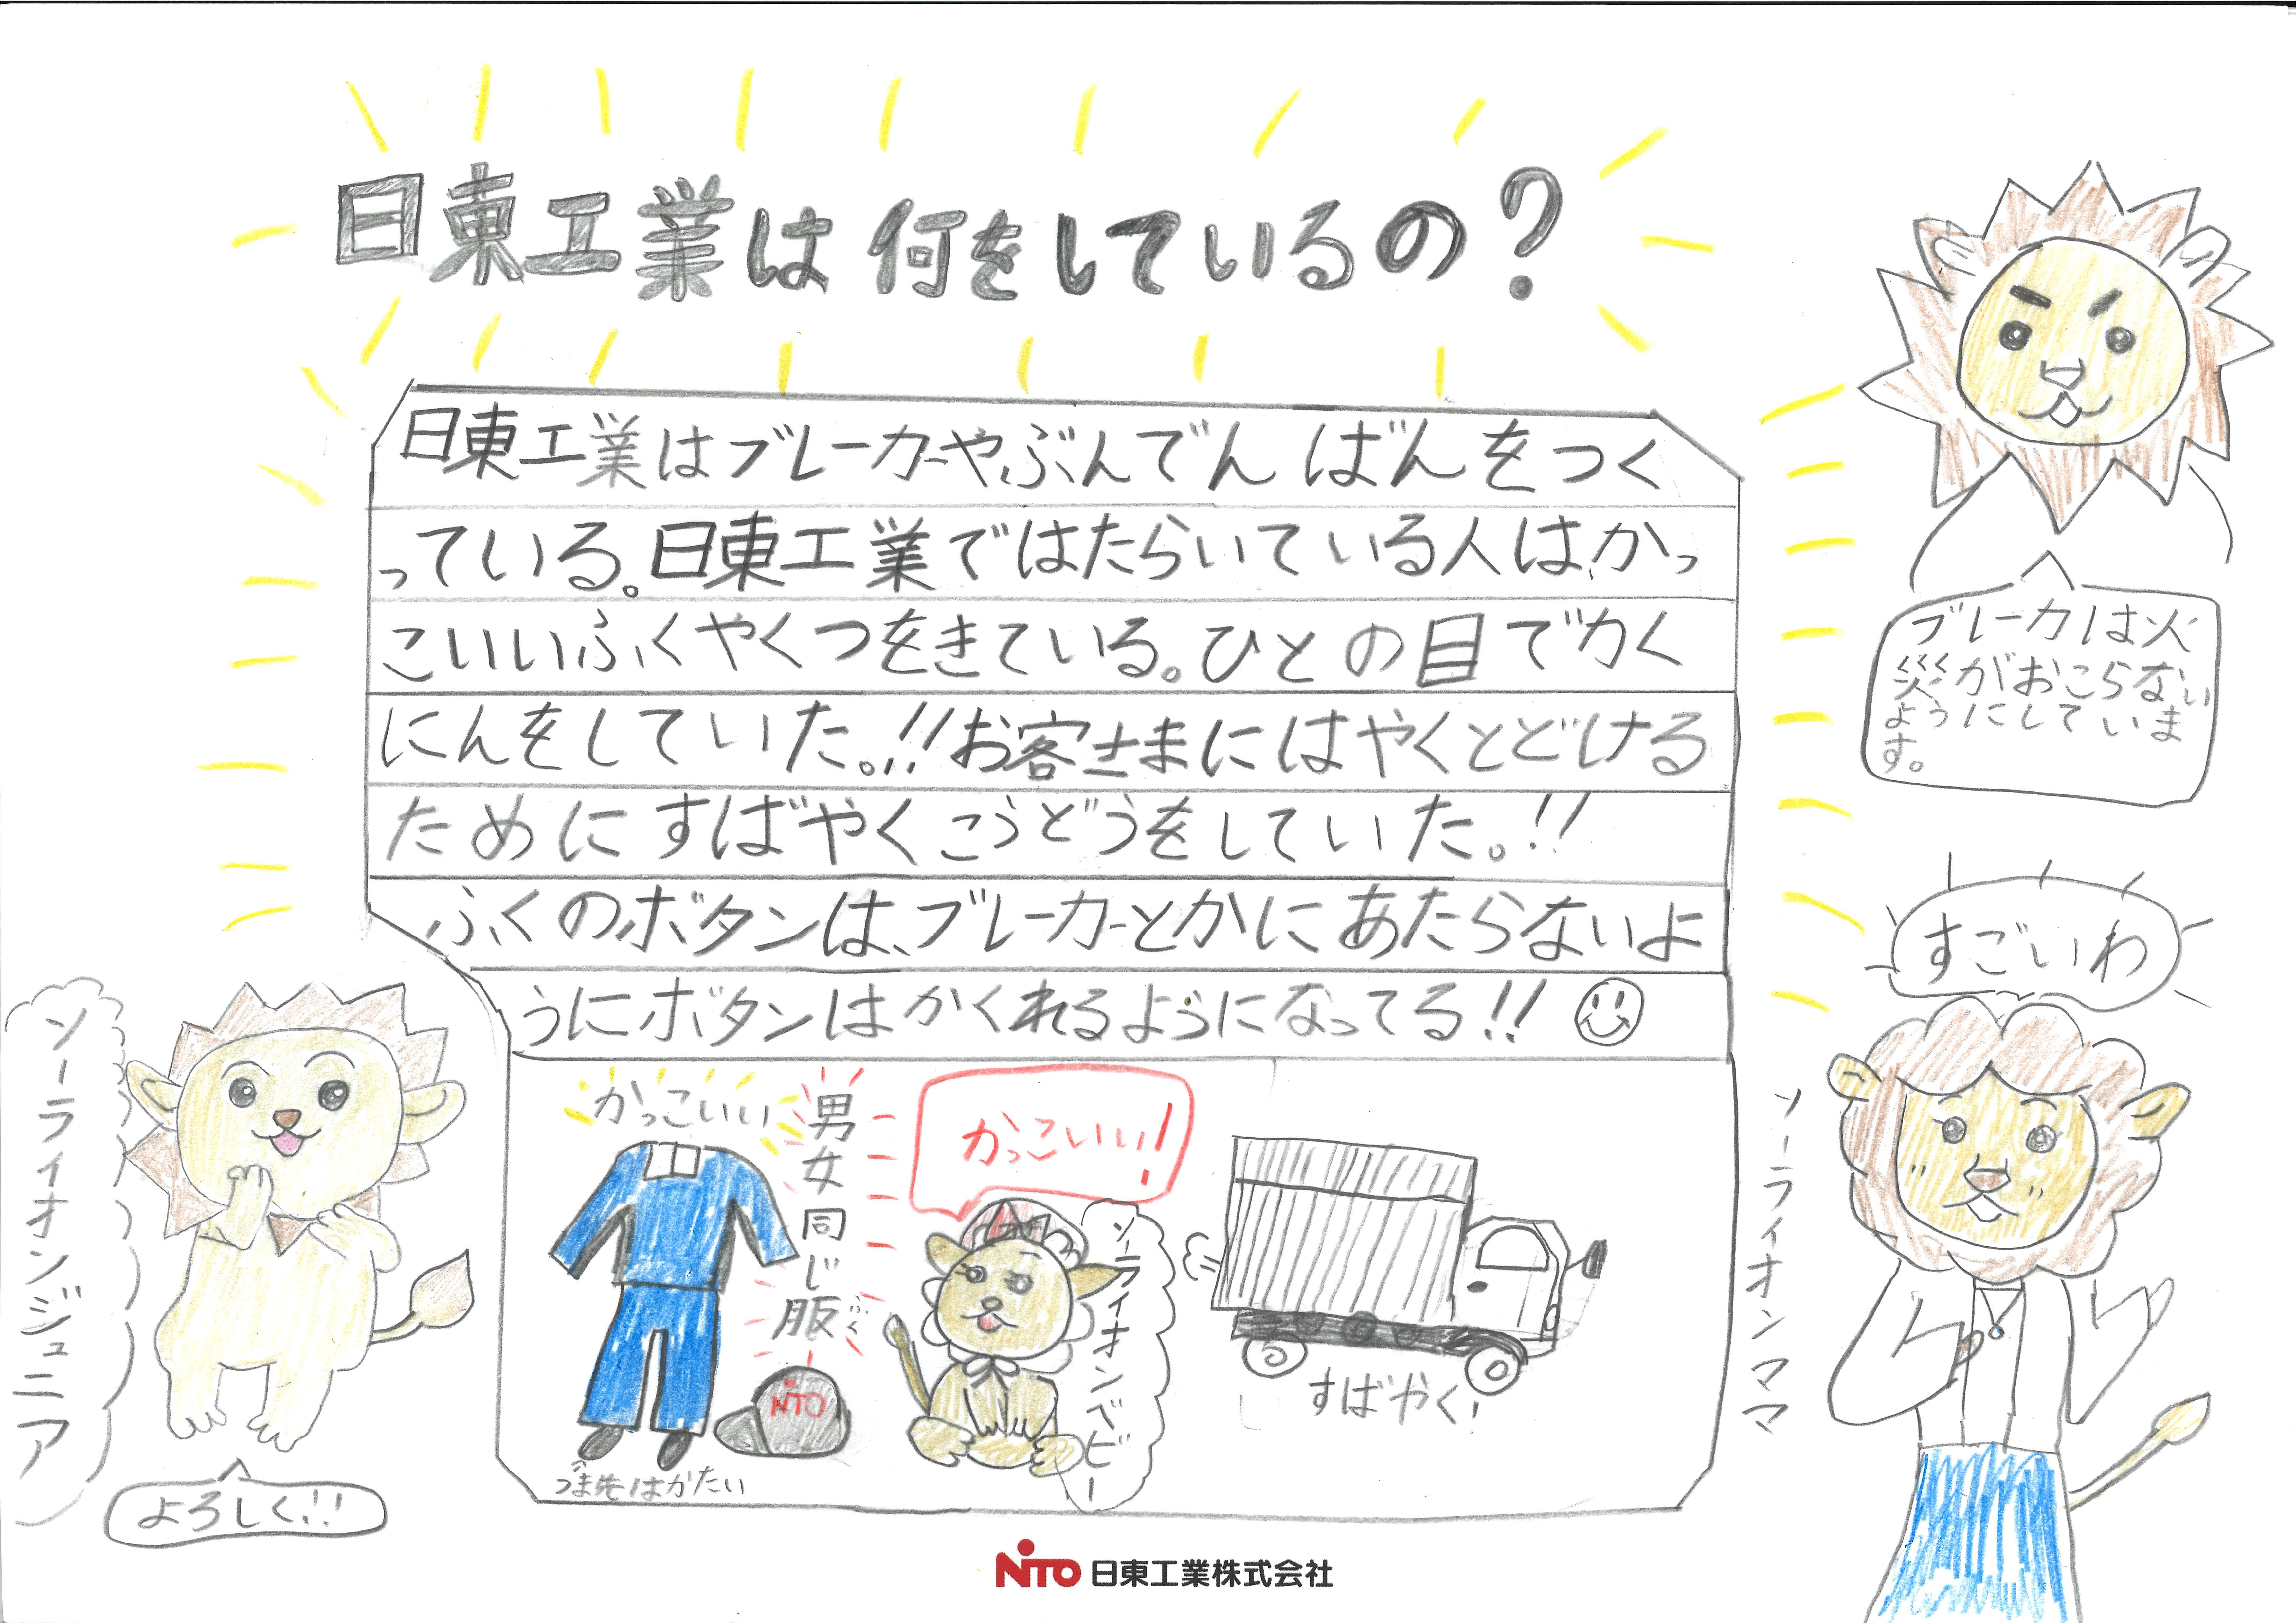 日東工業は何をしているの？
日東工業はブレーカーやぶんでんばんをつく
っている。日東工業ではたらいている人は、かっ
こいいふくやくつをきている。ひとの目でかく
にんをしていた。!!お客さまにはやくとどける
ためにすばやくこうどうをしていた。!!
ふくのボタンは、ブレーカーとかにあたらないよ
うにボタンはかくれるようになってる!!
かっこいい
男女同じ服
ふく
つま先はかたい
NITO
かっこいい!
ソーライオンベビー
すばやく!
ブレーカは火
災がおこらない
ようにしていま
す。
すごいわ
ソーライオンママ
ソーライオンジュニア
よろしく!!
NITO 日東工業株式会社